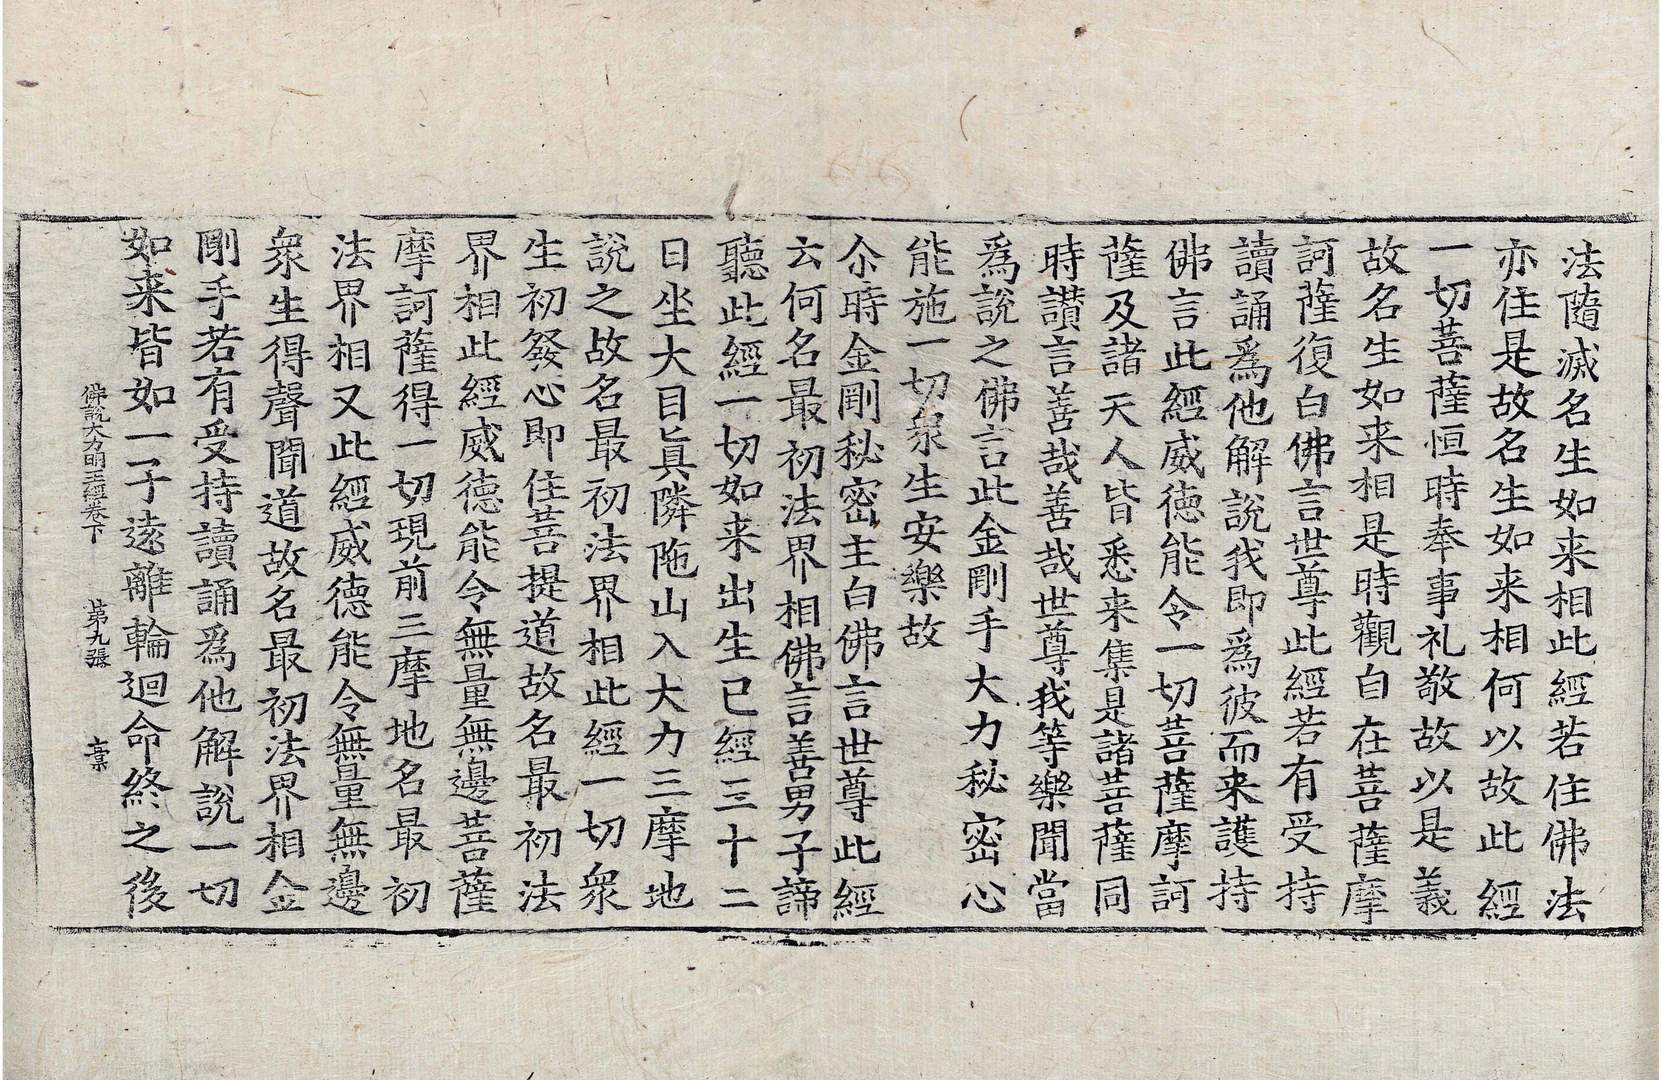 法隨滅名生如来相此經若住佛法
亦住是故名生如来相何以故此經
一切菩薩恒時奉事礼敬故以是義
故名生如来相是時觀自在菩薩摩
訶薩復白佛言世尊此經若有受持
讀誦爲他解説我即爲彼而来護持
佛言此經威徳能令一切菩薩摩訶
薩及諸天人皆悉来集是諸菩薩同
時讃言善哉善哉世尊我等樂聞當
爲説之佛言此金剛手大力秘密心
能施一切衆生安樂故
尒時金剛秘密主白佛言世尊此經
云何名最初法界相佛言善男子諦
聽此經一切如来出生已經三十二
日坐大目眞隣陁山入大力三摩地
說之故名最初法界相此經一切衆
生初發心即住菩提道故名最初法
界相此經威徳能令無量無邊菩薩
摩訶薩得一切現前三摩地名最初
法界相又此經威德能令無量無邊
衆生得聲聞道故名最初法界相金
剛手若有受持讀誦爲他解說一切
如来皆如一子逺離輪迴命終之後
佛說大力明王經卷下 第九張 稾